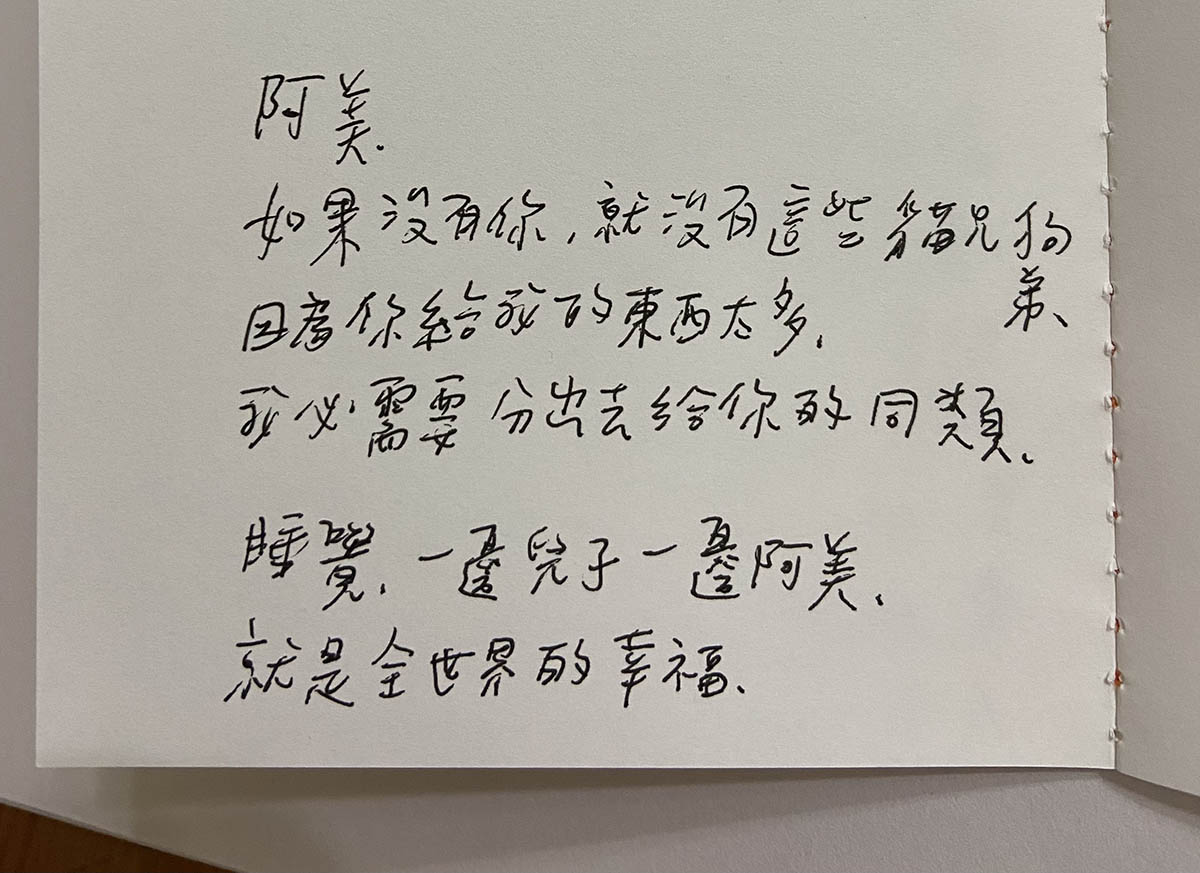 阿美.
如果没有你,就没有這些貓兄狗弟、
因為你給我的東西太多.
我必需要分出去給你的同類.
睡覺.一邊兒子一邊阿美.
就是全世界的幸福.